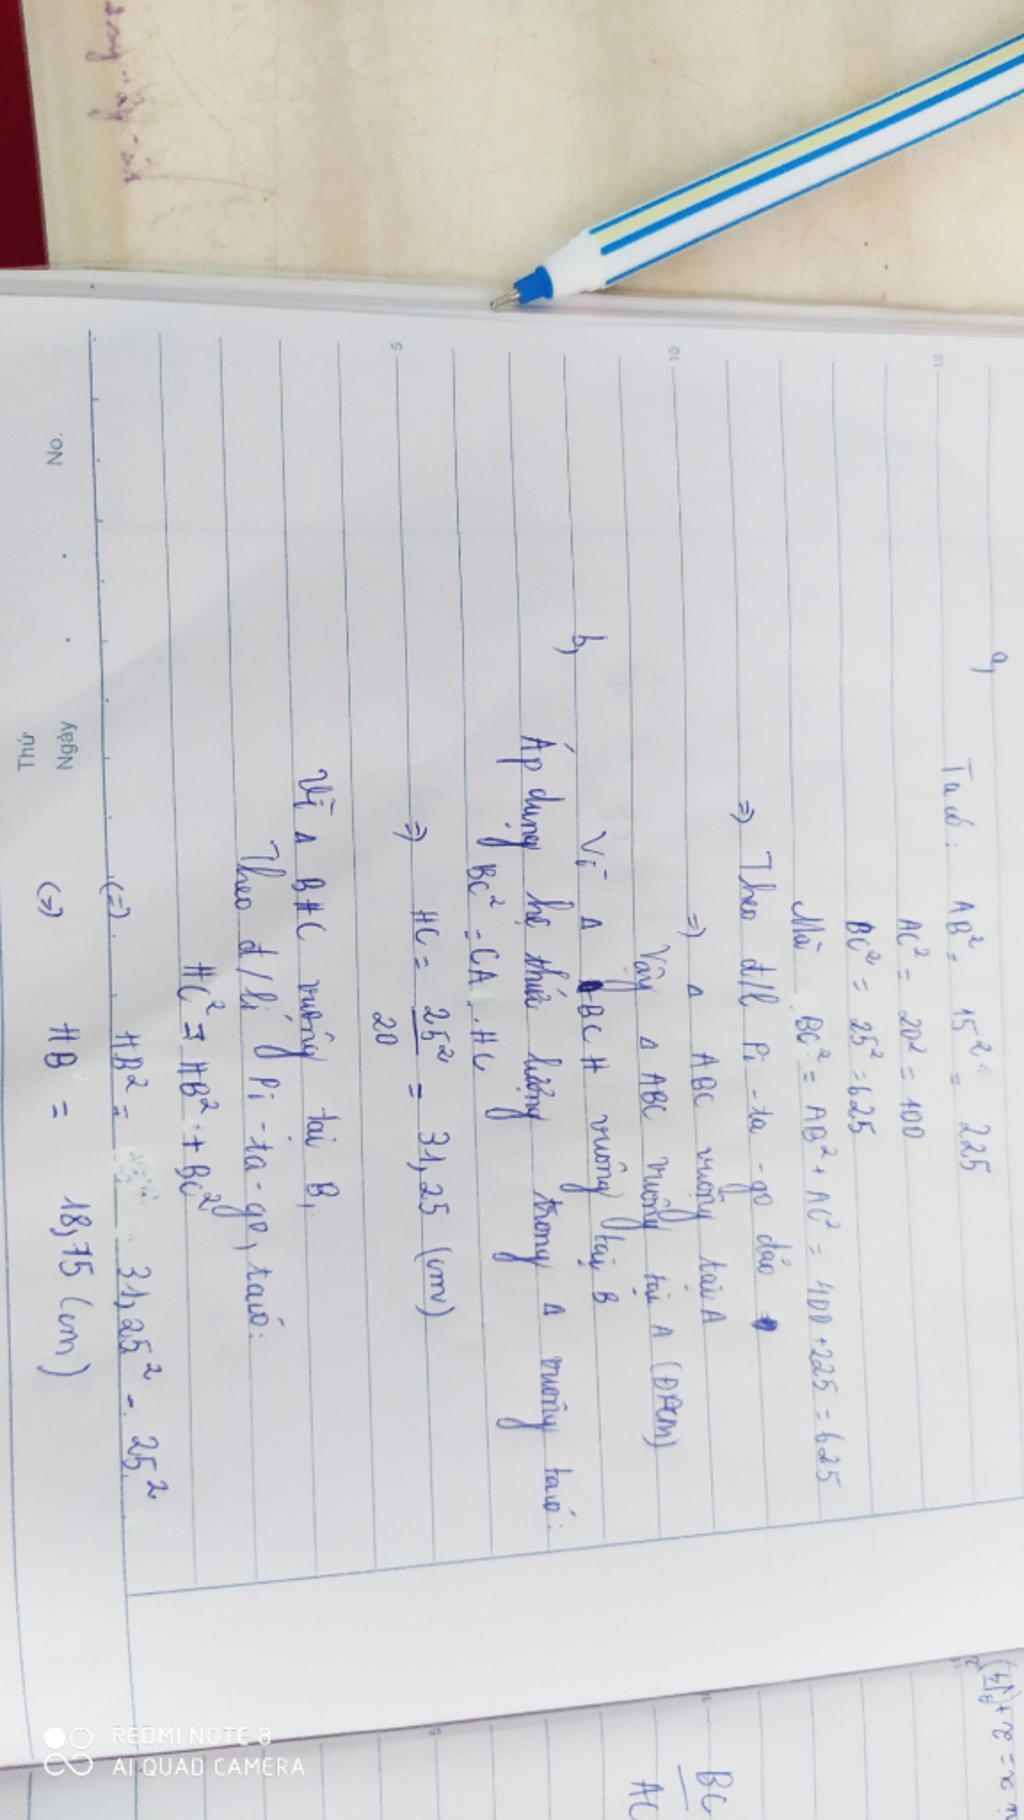 a,
Ta có: AB² = 15² = 225
AC² = 20² = 400
BC² = 25² = 625
Mà BC² = AB² + AC² = 400 + 225 = 625
=) Theo đ/l Pi-ta-go đảo
=) Δ ABC vuông tại A
Vậy Δ ABC vuông tại A (ĐPCM)
b, Vì Δ BCH vuông tại B
Áp dụng hệ thức lượng trong Δ vuông ta có:
BC² = CA . HC
=) HC = 25²/20 = 31,25 (cm)
Vì Δ BHC vuông tại B,
Theo đ/lí Pi-ta-go, ta có:
HC² = HB² + BC²
(=) HB² = 31,25² - 25²
(=) HB = 18,75 (cm)
No.
Ngày
Thứ
5
10
15
BC
AC
REDMI NOTE 8
AI QUAD CAMERA